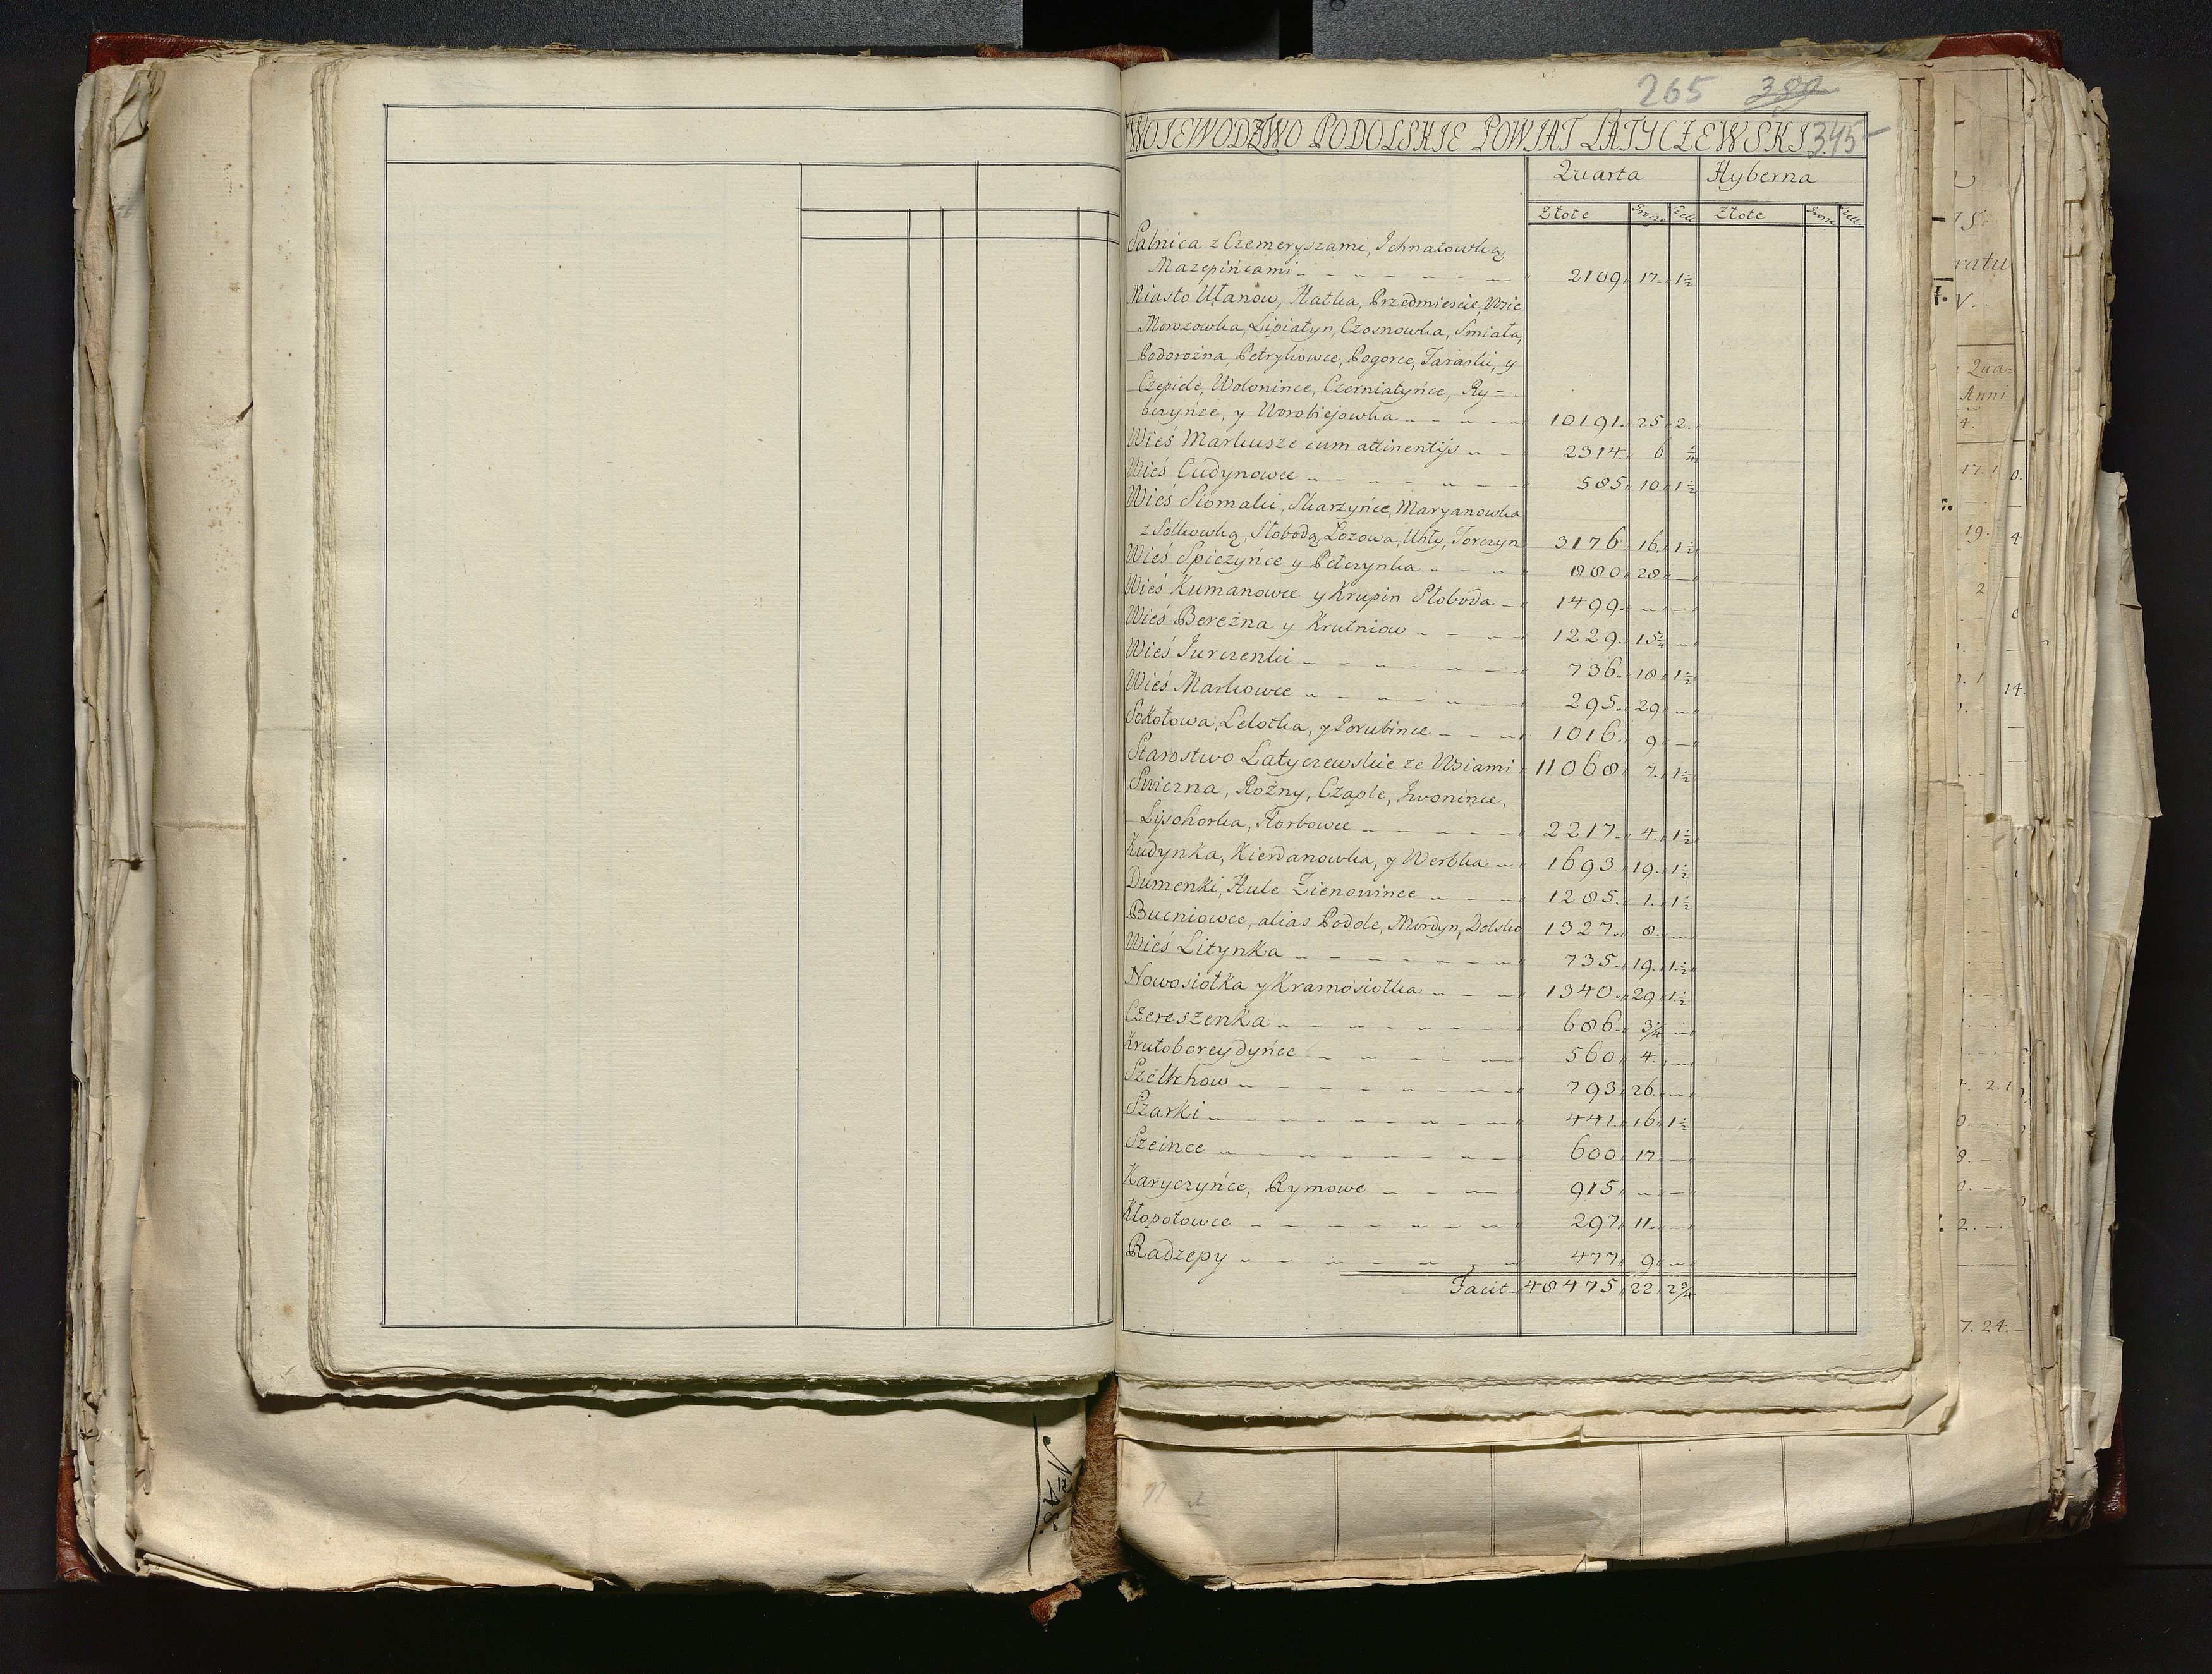 265 380
WOIEWODZWO PODOLSKIE POWIAT LATYCZEWSKI 345
Quarta Hyberna
Złote Grosze Szell. Złote Grosze Szell.
Salnica z Czemeryszami, Ichnatowką,
Mazepińcami 2109 17 1½
Miasto Ułanow, Hatka, Przedmiescie, Wsie
Morozowka, Lipiatyn, Czosnowka, Smiała,
Podorożna, Petrykowce, Pogorce, Taraski, y
Czepiele, Wolonince, Czerniatyńce, Ry=
bczyńce, y Worobiejowka 10191 25 2
Wieś Markusze cum attinentijs 2314 6
Wieś Cudynowce 585 10 1½
Wieś Siomaki, Skarzyńce, Maryanowka
z Solkowką, Słobodą, Łozowa, Uhły, Torczyn 3176 16 1½
Wieś Spiczyńce y Petczynka 880 28 —
Wieś Kumanowce y Krupin Słoboda 1499 — —
Wieś Bereżna y Krutniow 1229 15¾ —
Wieś Jurczenki 736 18 1½
Wieś Markowce 295 29 —
Sokołowa, Lelotka, y Porubince 1016 9 —
Starostwo Latyczewskie ze Wsiami 11068 7 1½
Swiczna, Rożny, Czaple, Iwonince,
Lysohorka, Horbowce 2217 4 1½
Kudynka, Kierdanowka, y Werbka 1693 19 1½
Dumenki, Hule Zienowince 1285 1 1½
Bucniowce, alias Podole, Mordyn, Dolsko 1327 8 —
Wieś Litynka 735 19 1½
Nowosiołka y Kramosiołka 1340 29 1½
Czereszenka 686 3¾ —
Krutoboreydyńce 560 4 —
Szełkchow 793 26 —
Szarki 441 16 1½
Szeince 600 17 —
Karyczyńce, Rymowe 915 — —
Kłopotowce 297 11 —
Radzepy 477 9 —
Facit 48475 22 2¾